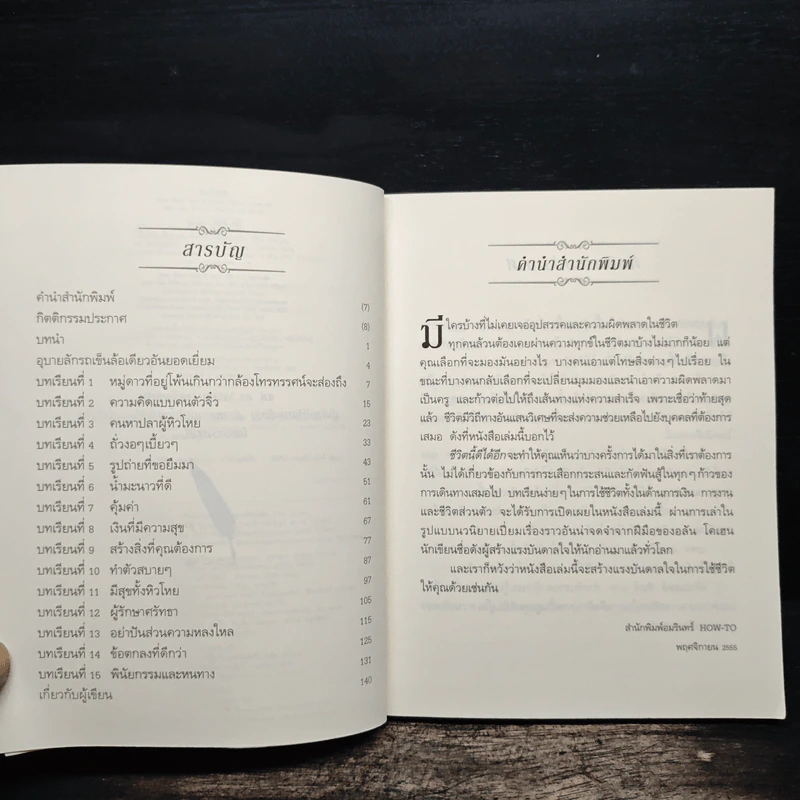 สารบัญ
คำนำสำนักพิมพ์ (7)
กิตติกรรมประกาศ (8)
บทนำ 1
อุบายลักรถเข็นล้อเดียวอันยอดเยี่ยม 4
บทเรียนที่ 1 หมู่ดาวที่อยู่โพ้นเกินกว่ากล้องโทรทรรศน์จะส่องถึง 7
บทเรียนที่ 2 ความคิดแบบคนตัวจิ๋ว 15
บทเรียนที่ 3 คนหาปลาผู้หิวโหย 23
บทเรียนที่ 4 ถั่วงอๆเบี้ยวๆ 33
บทเรียนที่ 5 รูปถ่ายที่ขอยืมมา 43
บทเรียนที่ 6 น้ำมะนาวที่ดี 51
บทเรียนที่ 7 คุ้มค่า 61
บทเรียนที่ 8 เงินที่มีความสุข 67
บทเรียนที่ 9 สร้างสิ่งที่คุณต้องการ 77
บทเรียนที่ 10 ทำตัวสบายๆ 87
บทเรียนที่ 11 มีสุขทั้งหิวโหย 97
บทเรียนที่ 12 ผู้รักษาศรัทธา 105
บทเรียนที่ 13 อย่าปันส่วนความหลงใหล 115
บทเรียนที่ 14 ข้อตกลงที่ดีกว่า 125
บทเรียนที่ 15 พินัยกรรมและหนทาง 131
เกี่ยวกับผู้เขียน 140
คำนำสำนักพิมพ์
มีใครบ้างที่ไม่เคยเจออุปสรรคและความผิดพลาดในชีวิต
ทุกคนล้วนต้องเคยผ่านความทุกข์ในชีวิตมาบ้างไม่มากก็น้อย แต่
คุณเลือกที่จะมองมันอย่างไร บางคนเอาแต่โทษสิ่งต่างๆไปเรื่อย ใน
ขณะที่บางคนกลับเลือกที่จะเปลี่ยนมุมมองและนำเอาความผิดพลาดมา
เป็นครู และก้าวต่อไปให้ถึงเส้นทางแห่งความสำเร็จ เพราะเชื่อว่าท้ายสุด
แล้ว ชีวิตมีวิถีทางอันแสนวิเศษที่จะส่งความช่วยเหลือไปยังบุคคลที่ต้องการ
เสมอ ดังที่หนังสือเล่มนี้บอกไว้
ชีวิตนี้ดีได้อีกจะทำให้คุณเห็นว่าบางครั้งการได้มาในสิ่งที่เราต้องการ
นั้น ไม่ได้เกี่ยวข้องกับการกระเสือกกระสนและกัดฟันสู้ในทุกๆก้าวของ
การเดินทางเสมอไป บทเรียนง่ายๆในการใช้ชีวิตทั้งในด้านการเงิน การงาน
และชีวิตส่วนตัว จะได้รับการเปิดเผยในหนังสือเล่มนี้ ผ่านการเล่าใน
รูปแบบนวนิยายเปี่ยมเรื่องราวอันน่าจดจำจากฝีมือของอลัน โคเฮน
นักเขียนชื่อดังผู้สร้างแรงบันดาลใจให้นักอ่านมาแล้วทั่วโลก
และเราก็หวังว่าหนังสือเล่มนี้จะสร้างแรงบันดาลใจในการใช้ชีวิต
ให้คุณด้วยเช่นกัน
สำนักพิมพ์อมรินทร์ HOW-TO
พฤศจิกายน 2555